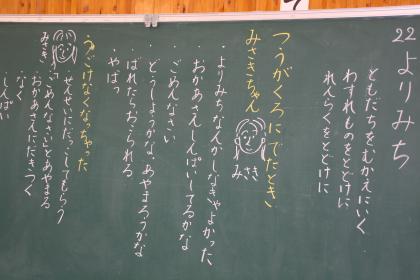 22 よりみち
ともだちをむかえにいく
わすれものをとどけに
れんらくをとどけに
つうがくろにでたとき
みさきちゃん
みさき
・よりみちなんかしなきゃよかった
・おかあさんしんぱいしてるかな
・ごめんなさい
・どうしようかな。あやまろうかな
・ばれたらおこられる
・やばっ
うごけなくなっちゃった
みさき
せんせいにだっこしてもらう
「ごめんなさい」とあやまる
おかあさんにだきつく
なく
しんぱい